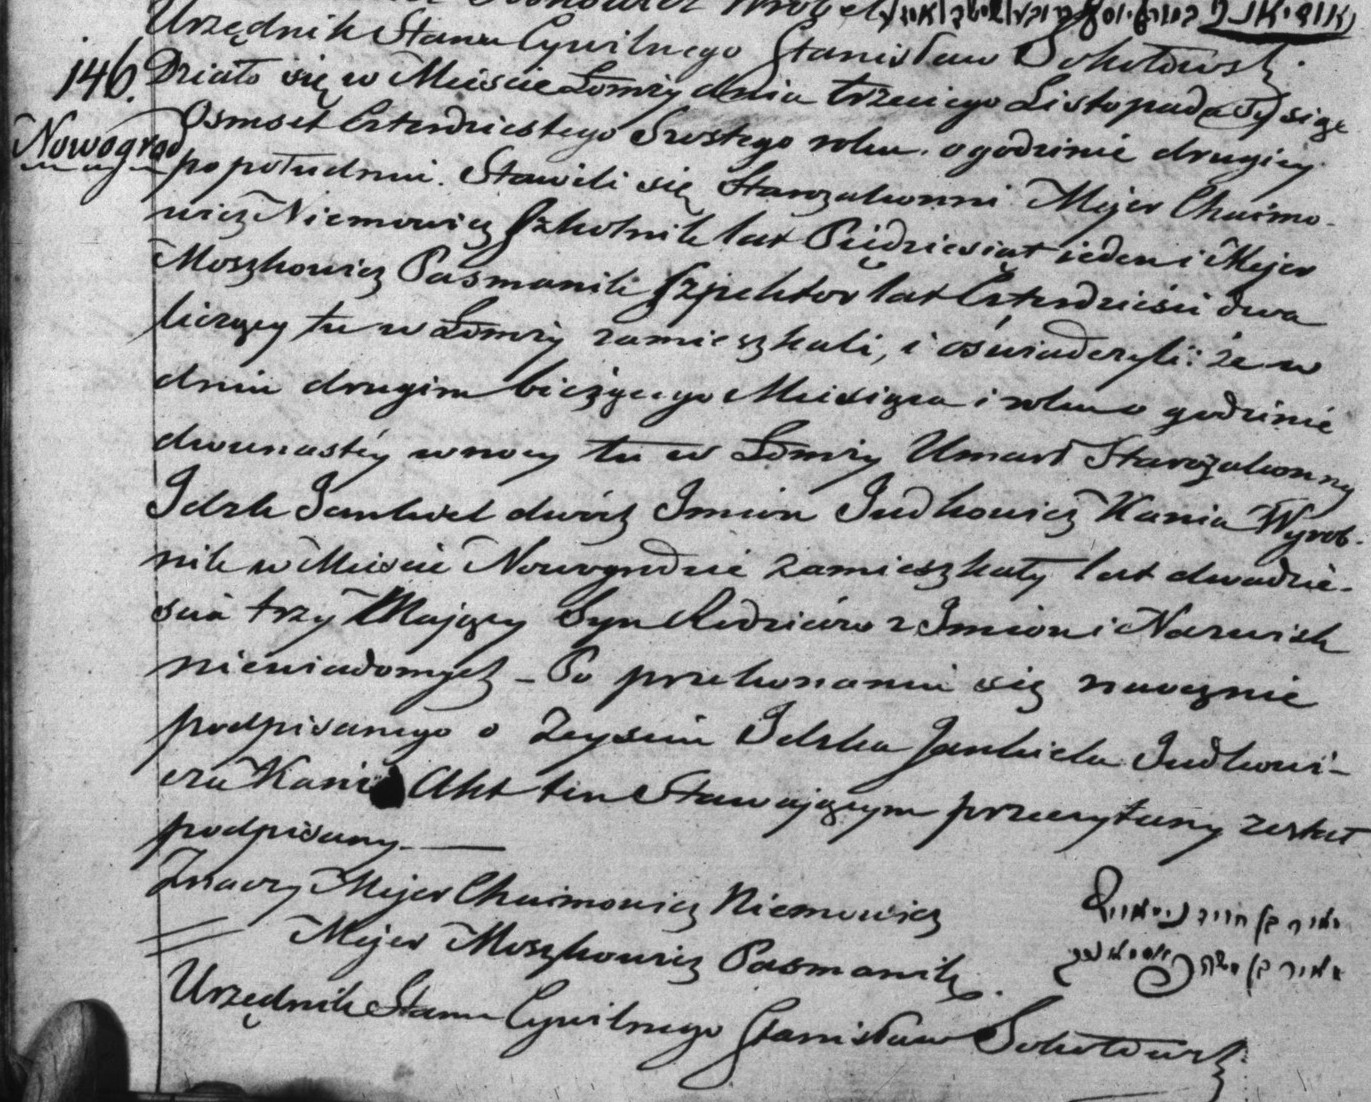 Urzędnik Stanu Cywilnego Stanisław Sokołowski
146.
Nowogrod
Działo się w Mieście Łomży dnia trzeciego Listopada Tysiąc
Osmset Czterdziestego Szostego roku o godzinie drugiey
po południu. Stawili się Starozakonni Mejer Chaimo-
wicz Niemowicz Szkolnik lat Pięćdziesiąt ieden i Mejer
Moszkowicz Pasmanik Szpektor lat Czterdzieści dwa
liczący tu w Łomży zamieszkali, i oświadczyli: że w
dniu drugim bieżącego Miesiąca i roku o godzinie
dwunastéy w nocy tu w Łomży Umarł Starozakonny
Jdzk Jankiel dwóch Jmion Judkowicz Kania Wyrob-
nik w Mieście Nowogrodzie zamieszkały lat dwadzie-
ścia trzy Maiący Syn Rodziców z Jmion i Nazwisk
niewiadomych – Po przekonaniu się naocznie
podpisanego o Zeyściu Jdzka Jankiela Judkowi-
cza Kani Akt ten Stawaiącym przeczytany został
podpisany.
Znaczy Mejer Chaimowicz Niemowicz
Mejer Moszkowicz Pasmanik.
Urzędnik Stanu Cywilnego Stanisław Sokołowski